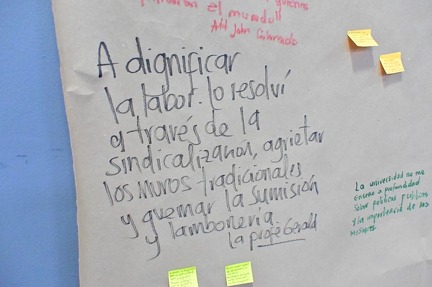 el mundo"
Att John Colorado
A dignificar
la labor. lo resolví
a través de la
sindicalizanos, agrietar
los muros tradicionales
y quemar la sumisión
y lambonería.
la profe Gerald
La universidad no me
enseño a profundidad
sobre politicas publicas
y la importancia de las